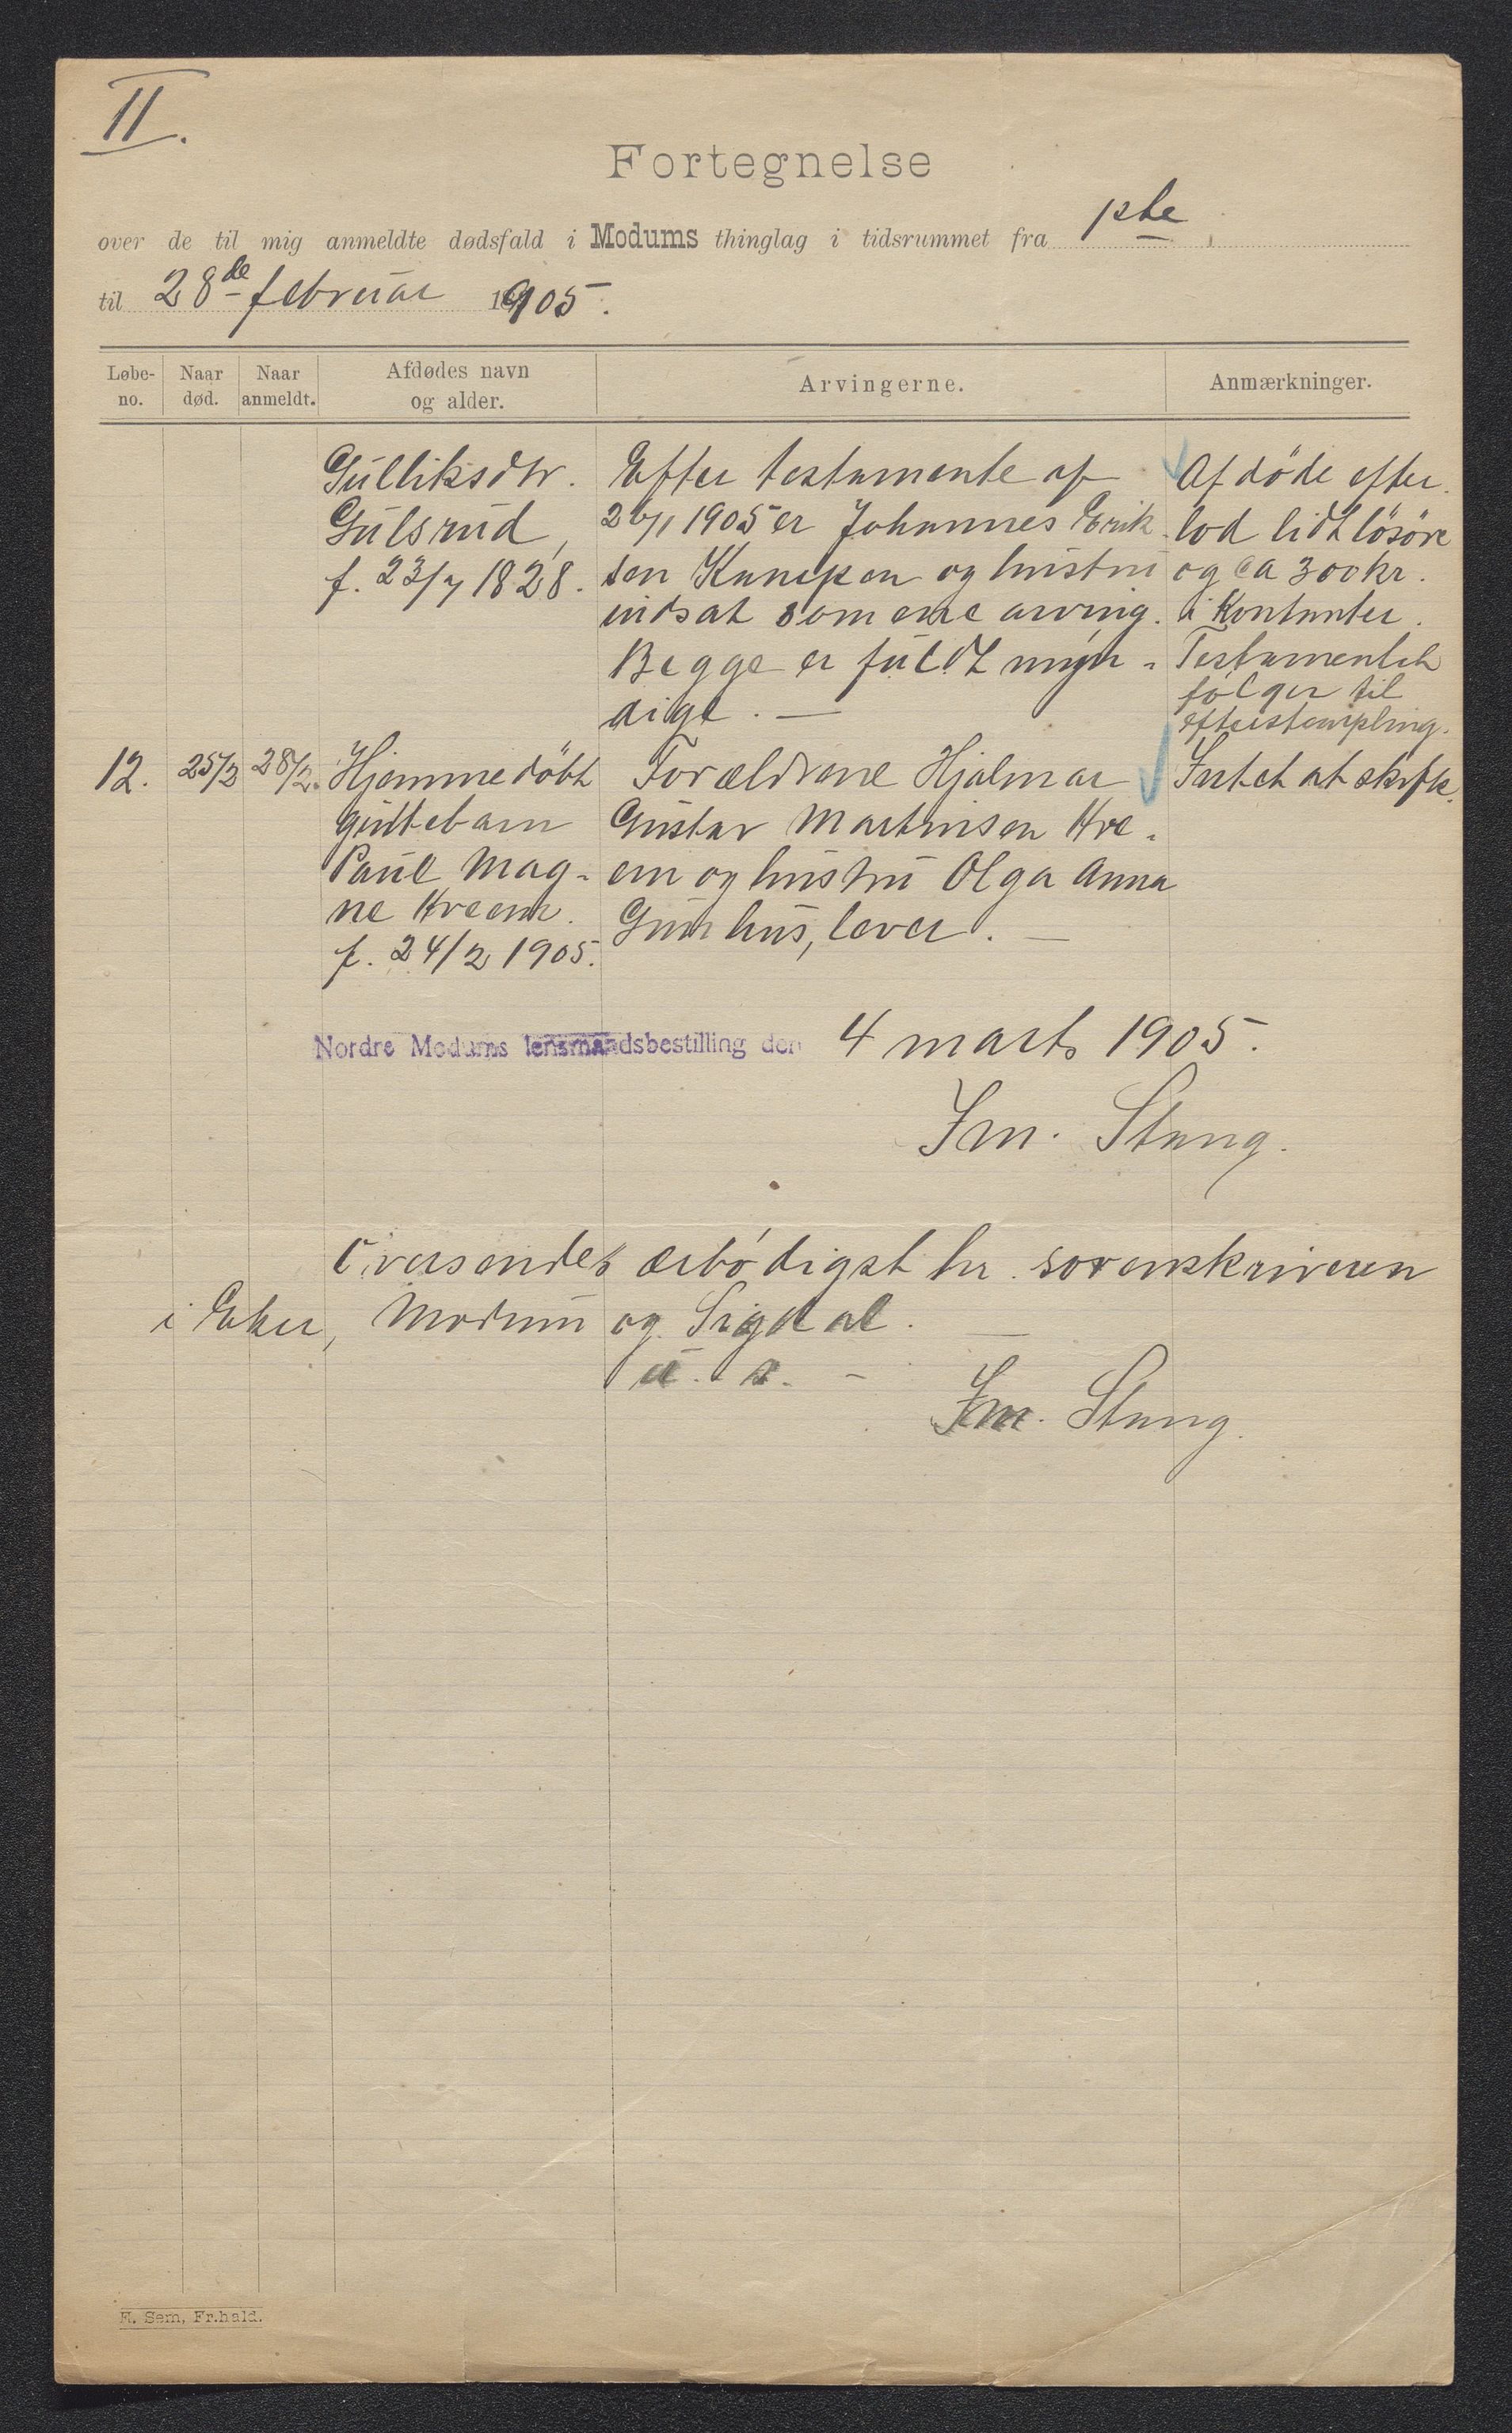 II.
Fortegnelse
over de til mig anmeldte dødsfald i Modums thinglag i tidsrummet fra 1ste
til 28de februar 1905.
Løbe-no. Naar død. Naar anmeldt. Afdødes navn og alder. Arvingerne. Anmærkninger.
Gulliksdtr.
Gulsrud,
f. 23/7 1828.
Efter testamente af
26/1 1905 er Johannes Erik-
sen og hustru
indsat som ene arving.
Begge er fuldt myn-
dige. —
Afdøde efter-
lod lidt løsøre
og ca 300 kr.
i Kontanter.
Testamentet
følger til
efterstempling.
12. 25/2 28/2.
Hjemmedøbt
guttebarn
Paul Mag-
ne Kreem.
f. 24/2 1905.
Forældrene Hjalmar
Gustav Martinsen Kre-
em og hustru Olga Anna
Gunhus, lever. —
Intet at skifte.
Nordre Modums lensmandsbestilling den 4 marts 1905.
Im. Stang.
Oversendes ærbødigst hr. sorenskriveren
i Eker, Modum og Sigdal. —
u. s. —
Im. Stang.
H. Sem, Fr.hald.